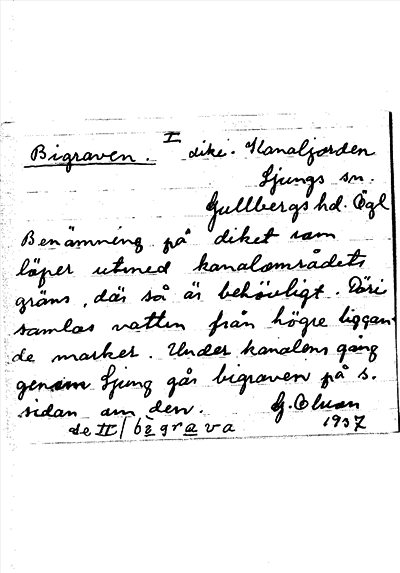 I
Bigraven. dike. Kanaljorden
Ljungs sn.
Gullbergs hd. Ögl
Benämning på diket som
löper utmed kanalområdets
gräns, där så är behövligt. Däri
samlas vatten från högre liggan-
de marker. Under kanalens gång
genom Ljung går bigraven på s.
sidan om den. G. Olson
de II / bègrava 1937